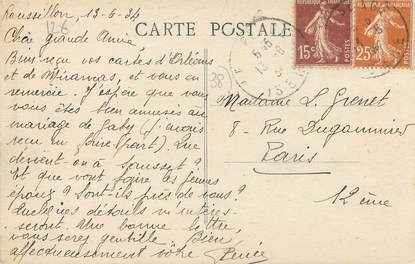 Roussillon, 13-6-34
CARTE POSTALE
Chère grande Amie
Bien reçu vos cartes d'Orléans
et de Miramas, et vous en
remercie. J'espère que vous
vous êtes bien amusés au
mariage de Gaby (j'avais
reçu un faire-part). Que
devient on à Sausset ?
Et que vont faire les jeunes
époux ? Sont-ils près de vous ?
Quelques détails m'intéres-
seront. Une bonne lettre,
vous serez gentille. Bien
affectueusement vôtre Renée
38
15c
POSTES
25c
POSTES
Madame L. Grenet
8 - Rue Dugommier
Paris
12ème